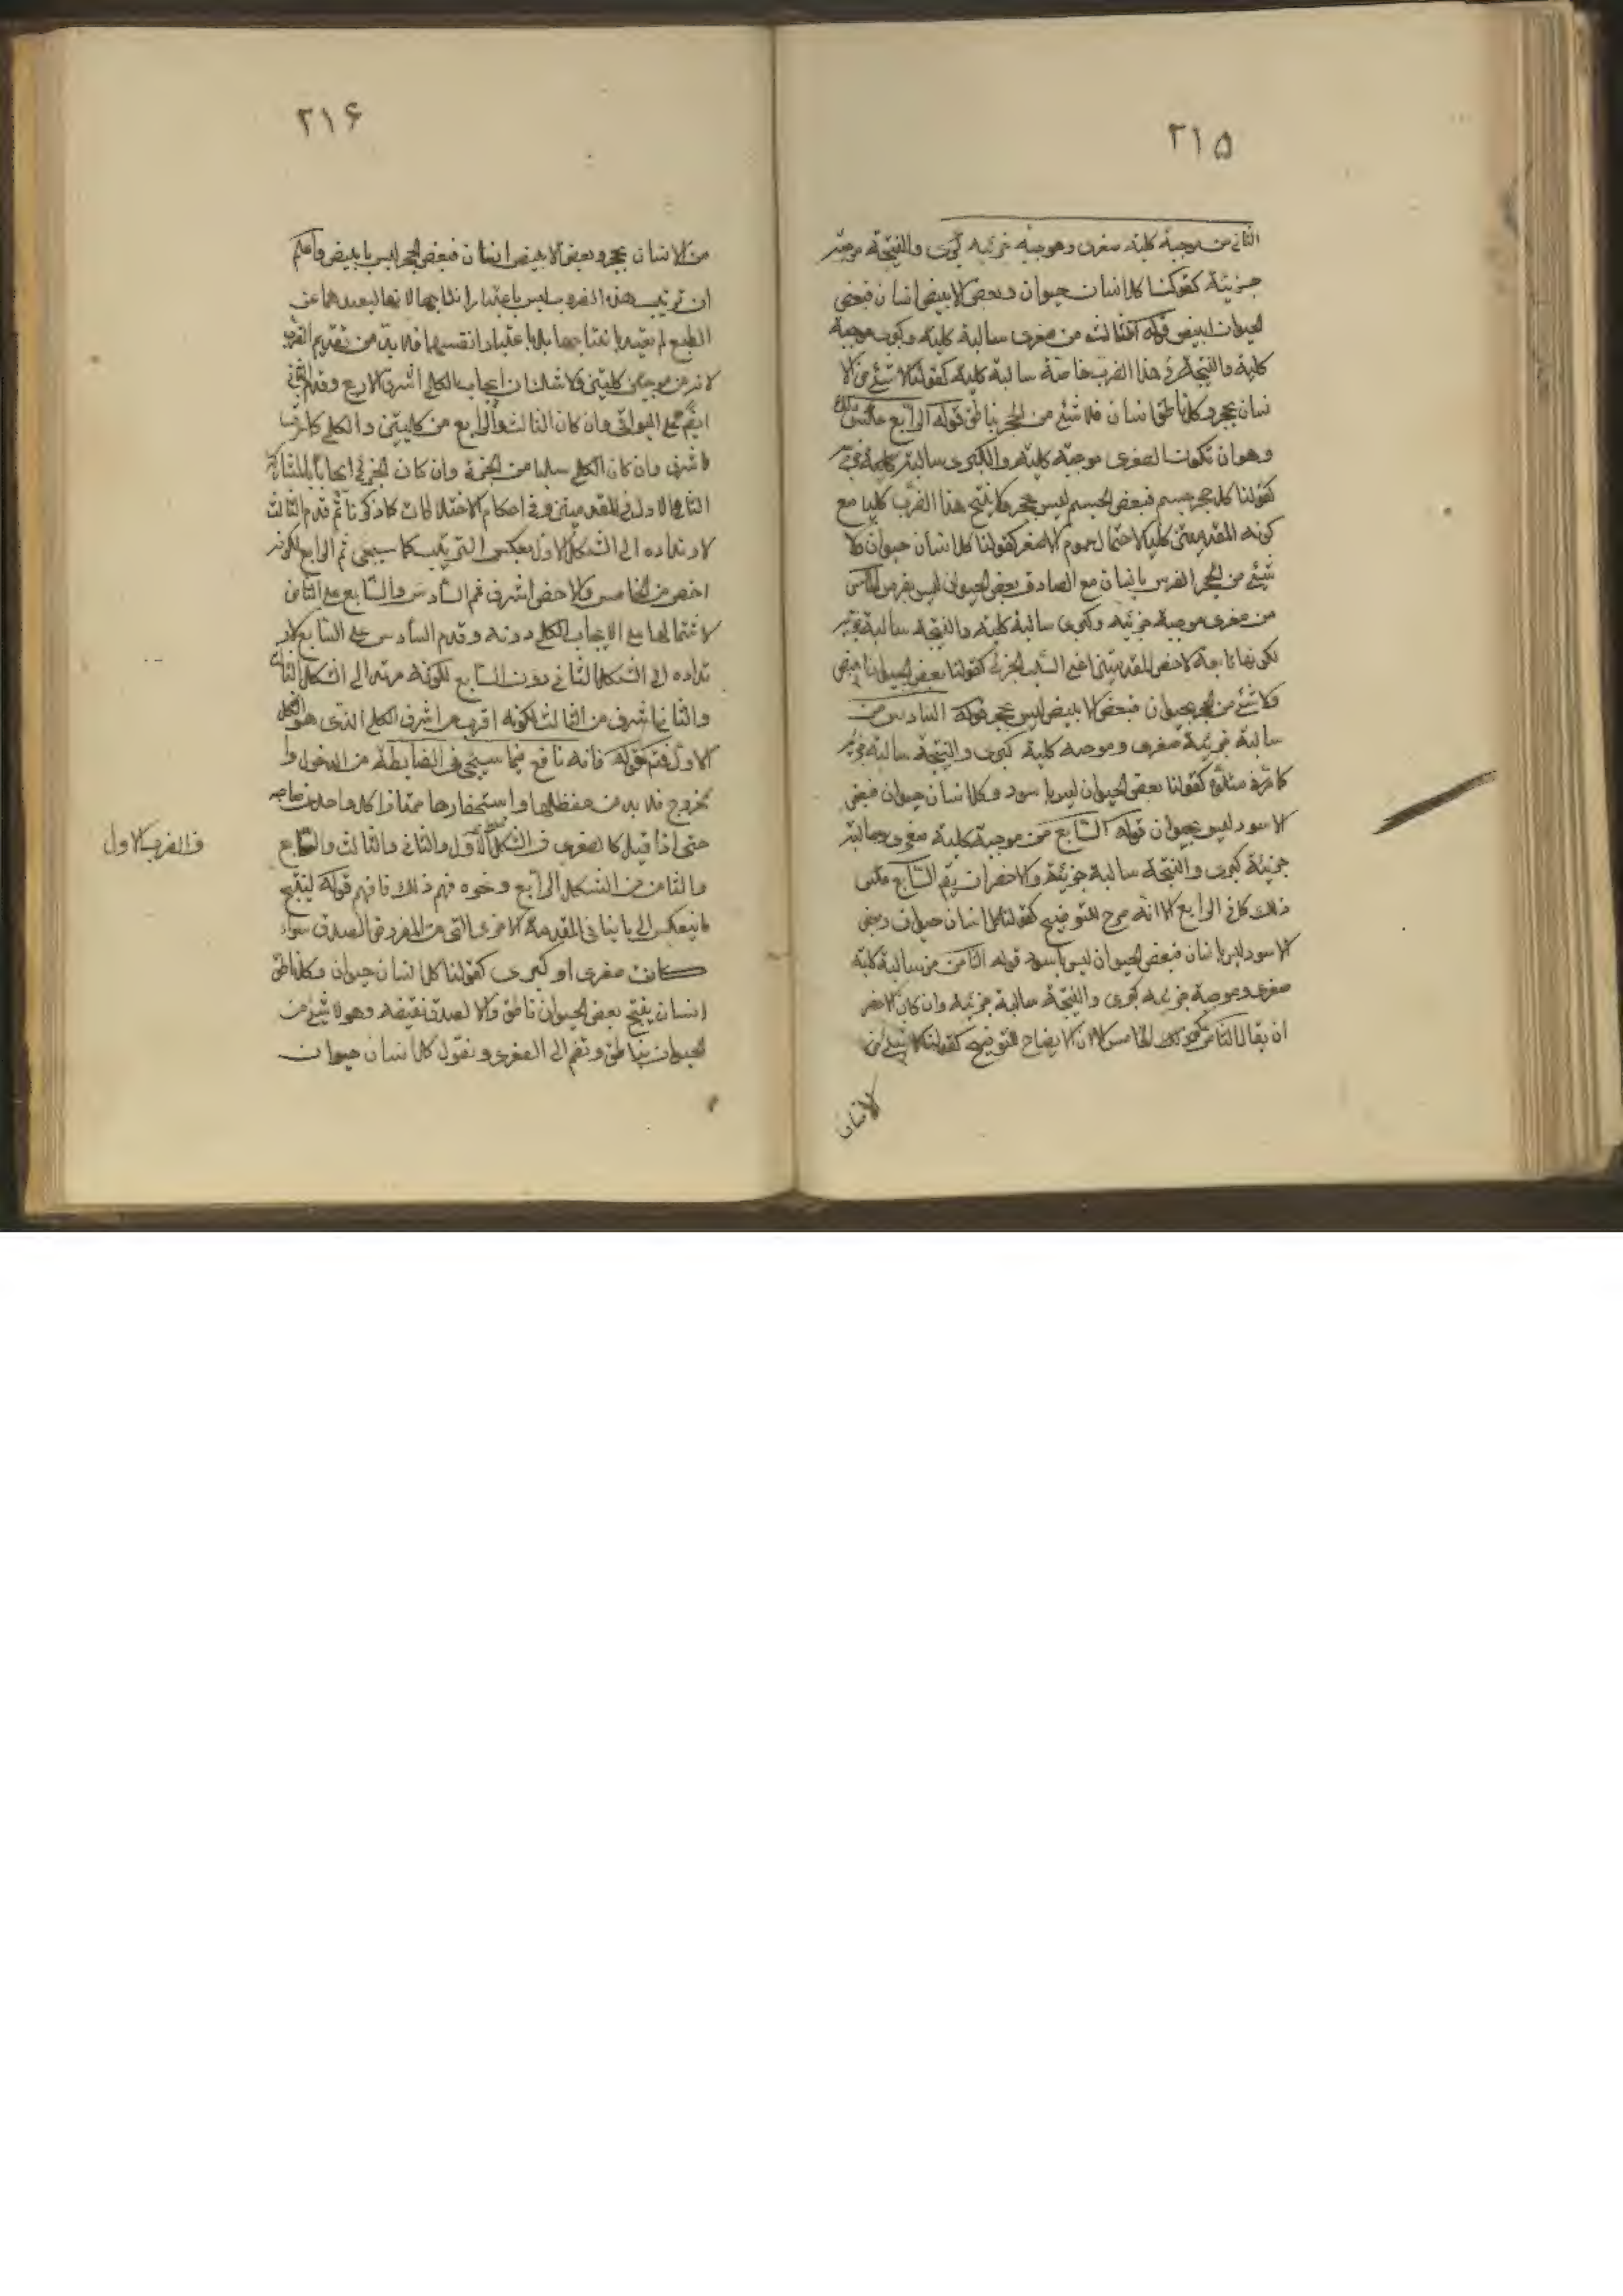 ٢١۵
الثانى من موجبة كلية صغرى وموجبة جزئية كبرى والنتيجة موجبة
جزئية كقولنا كل انسان حيوان وبعض الابيض انسان فبعض
الحيوان ابيض قوله الثالث من صغرى سالبة كلية وكبرى موجبة
كلية والنتيجة فى هذا الضرب خاصة سالبة كلية كقولنا لا شئ من الا
نسان بحجر وكل ناطق انسان فلا شئ من الحجر بناطق قوله الرابع عكس ذلك
وهو ان تكون الصغرى موجبة كلية والكبرى سالبة كلية
كقولنا كل حجر جسم فبعض الجسم ليس بحجر ولا ينتج هذا الضرب كليا مع
كونه المقدمتين كليا لاحتمال عموم الاصغر كقولنا كل انسان حيوان ولا
شئ من الفرس بانسان مع الصادق بعض الحيوان ليس بفرس الخامس
من صغرى موجبة جزئية وكبرى سالبة كلية والنتيجة سالبة جزئية
لكونها تابعة لاخص المقدمتين اعنى السلب الجزئى كقولنا بعض الحيوان ابيض
ولا شئ من الحجر بحيوان فبعض الابيض ليس بحجر قوله السادس من
سالبة جزئية صغرى وموجبة كلية كبرى والنتيجة سالبة جزئية
كما مر كقولنا بعض الحيوان ليس باسود وكل انسان حيوان فبعض
الاسود ليس بحيوان قوله السابع من موجبة كلية صغرى وسالبة
جزئية كبرى والنتيجة سالبة جزئية والاخصر ان يقم السابع عكس
ذلك كما فى الرابع الا انه صرح للتوضيح كقولنا كل انسان حيوان وبعض
الاسود ليس بانسان فبعض الحيوان ليس باسود قوله الثامن من سالبة كلية
صغرى وموجبة جزئية كبرى والنتيجة سالبة جزئية وان كان الاخصر
ان يقال الثامن عكس الخامس الا ان الايضاح للتوضيح كقولنا لا شئ من
الانسان
٢١۶
من الانسان بحجر وبعض الابيض انسان فبعض الحجر ليس بابيض واعلم
ان ترتيب هذه الضروب ليس باعتبار انتاجها لانها لبعدها عن
الطبع لم يعتد بانتاجها بل باعتبار انفسها فلا بد من تقديم الضرب
لانه من موجبتين كليتين ولا شك ان ايجاب الكلى اشرف الاربع وقدم الثانى
ايضم على البواقى وان كان الثالث والرابع من كليتين والكلى
اشرف وان كان الكلى سلبا من الجزء وان كان الجزئى ايجابا لمشاركة
الثانى الاول فى المقدمتين وفى احكام الاختلاطات كما ذكرنا ثم قدم الثالث
لارتداده الى الشكل الاول بعكس الترتيب كما سيجئ ثم الرابع لكونه
اخص من الخامس والاخص اشرف ثم السادس والسابع على الثامن
لاشتمالها على الايجاب الكلى دونه وقدم السادس على السابع لار
تداده الى الشكل الثانى دون السابع لكونه مرتدا الى الشكل الثالث
والثانى اشرف من الثالث لكونه اقرب من اشرف الكل الذى هو الشكل
الاول فتم قوله فانه نافع فيما سيجئ فى الضابطة من الدخول وا
لخروج فلا بد من حفظها واستحضارها ممتازا كل واحد من صاحبه
حتى اذا قيل كالصغرى فى الشكل الاول والثانى والثالث والسابع
والثامن من الشكل الرابع ونحوه فهم ذلك فافهم قوله لينتج
ما ينعكس الى ما ينافى المقدمة الاخرى التى من المفروض الصدق سواء
كانت صغرى او كبرى كقولنا كل انسان حيوان وكل ناطق
انسان ينتج بعض الحيوان ناطق والا لصدق نقيضه وهو لا شئ من
الحيوان بناطق ونضم الى الصغرى ونقول كل انسان حيوان
والضرب الاول